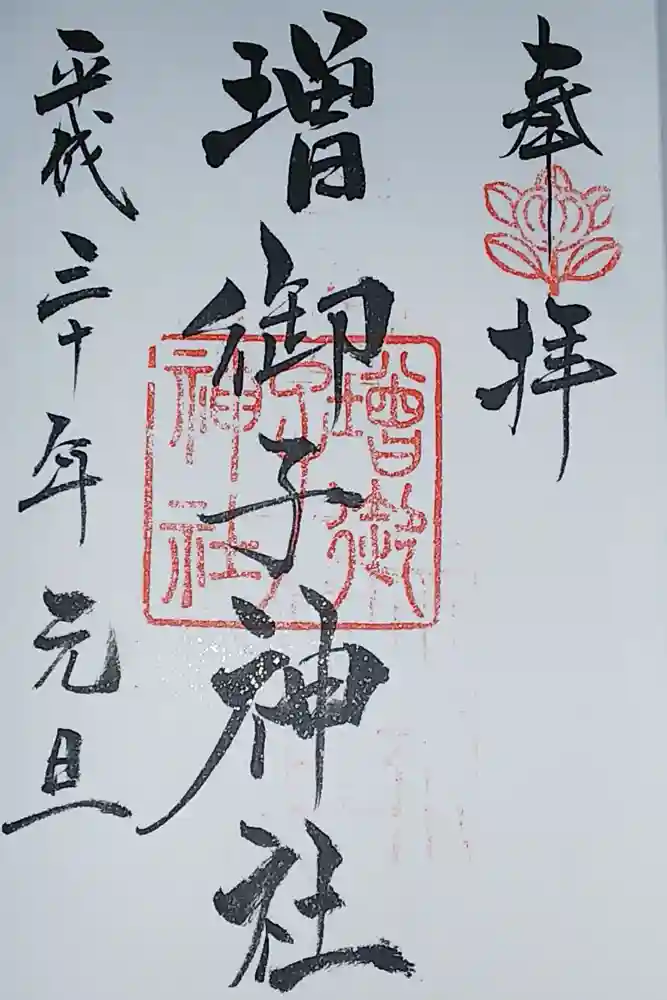 奉拝
増御子神社
平成三十年元旦
増御
子
神社